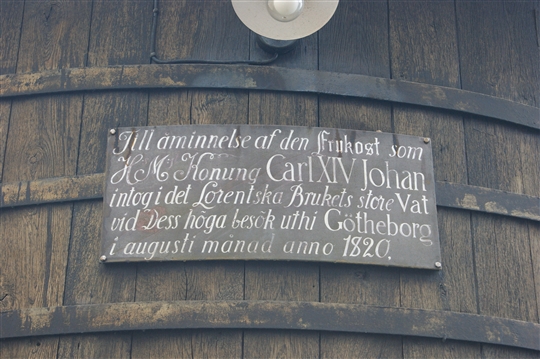 Till åminnelse af den Frukost som
H. M.ͭ Konung Carl XIV Johan
intog i det Lorentska Brukets store Vat
vid Dess höga besök uthi Götheborg
i augusti månad anno 1820.